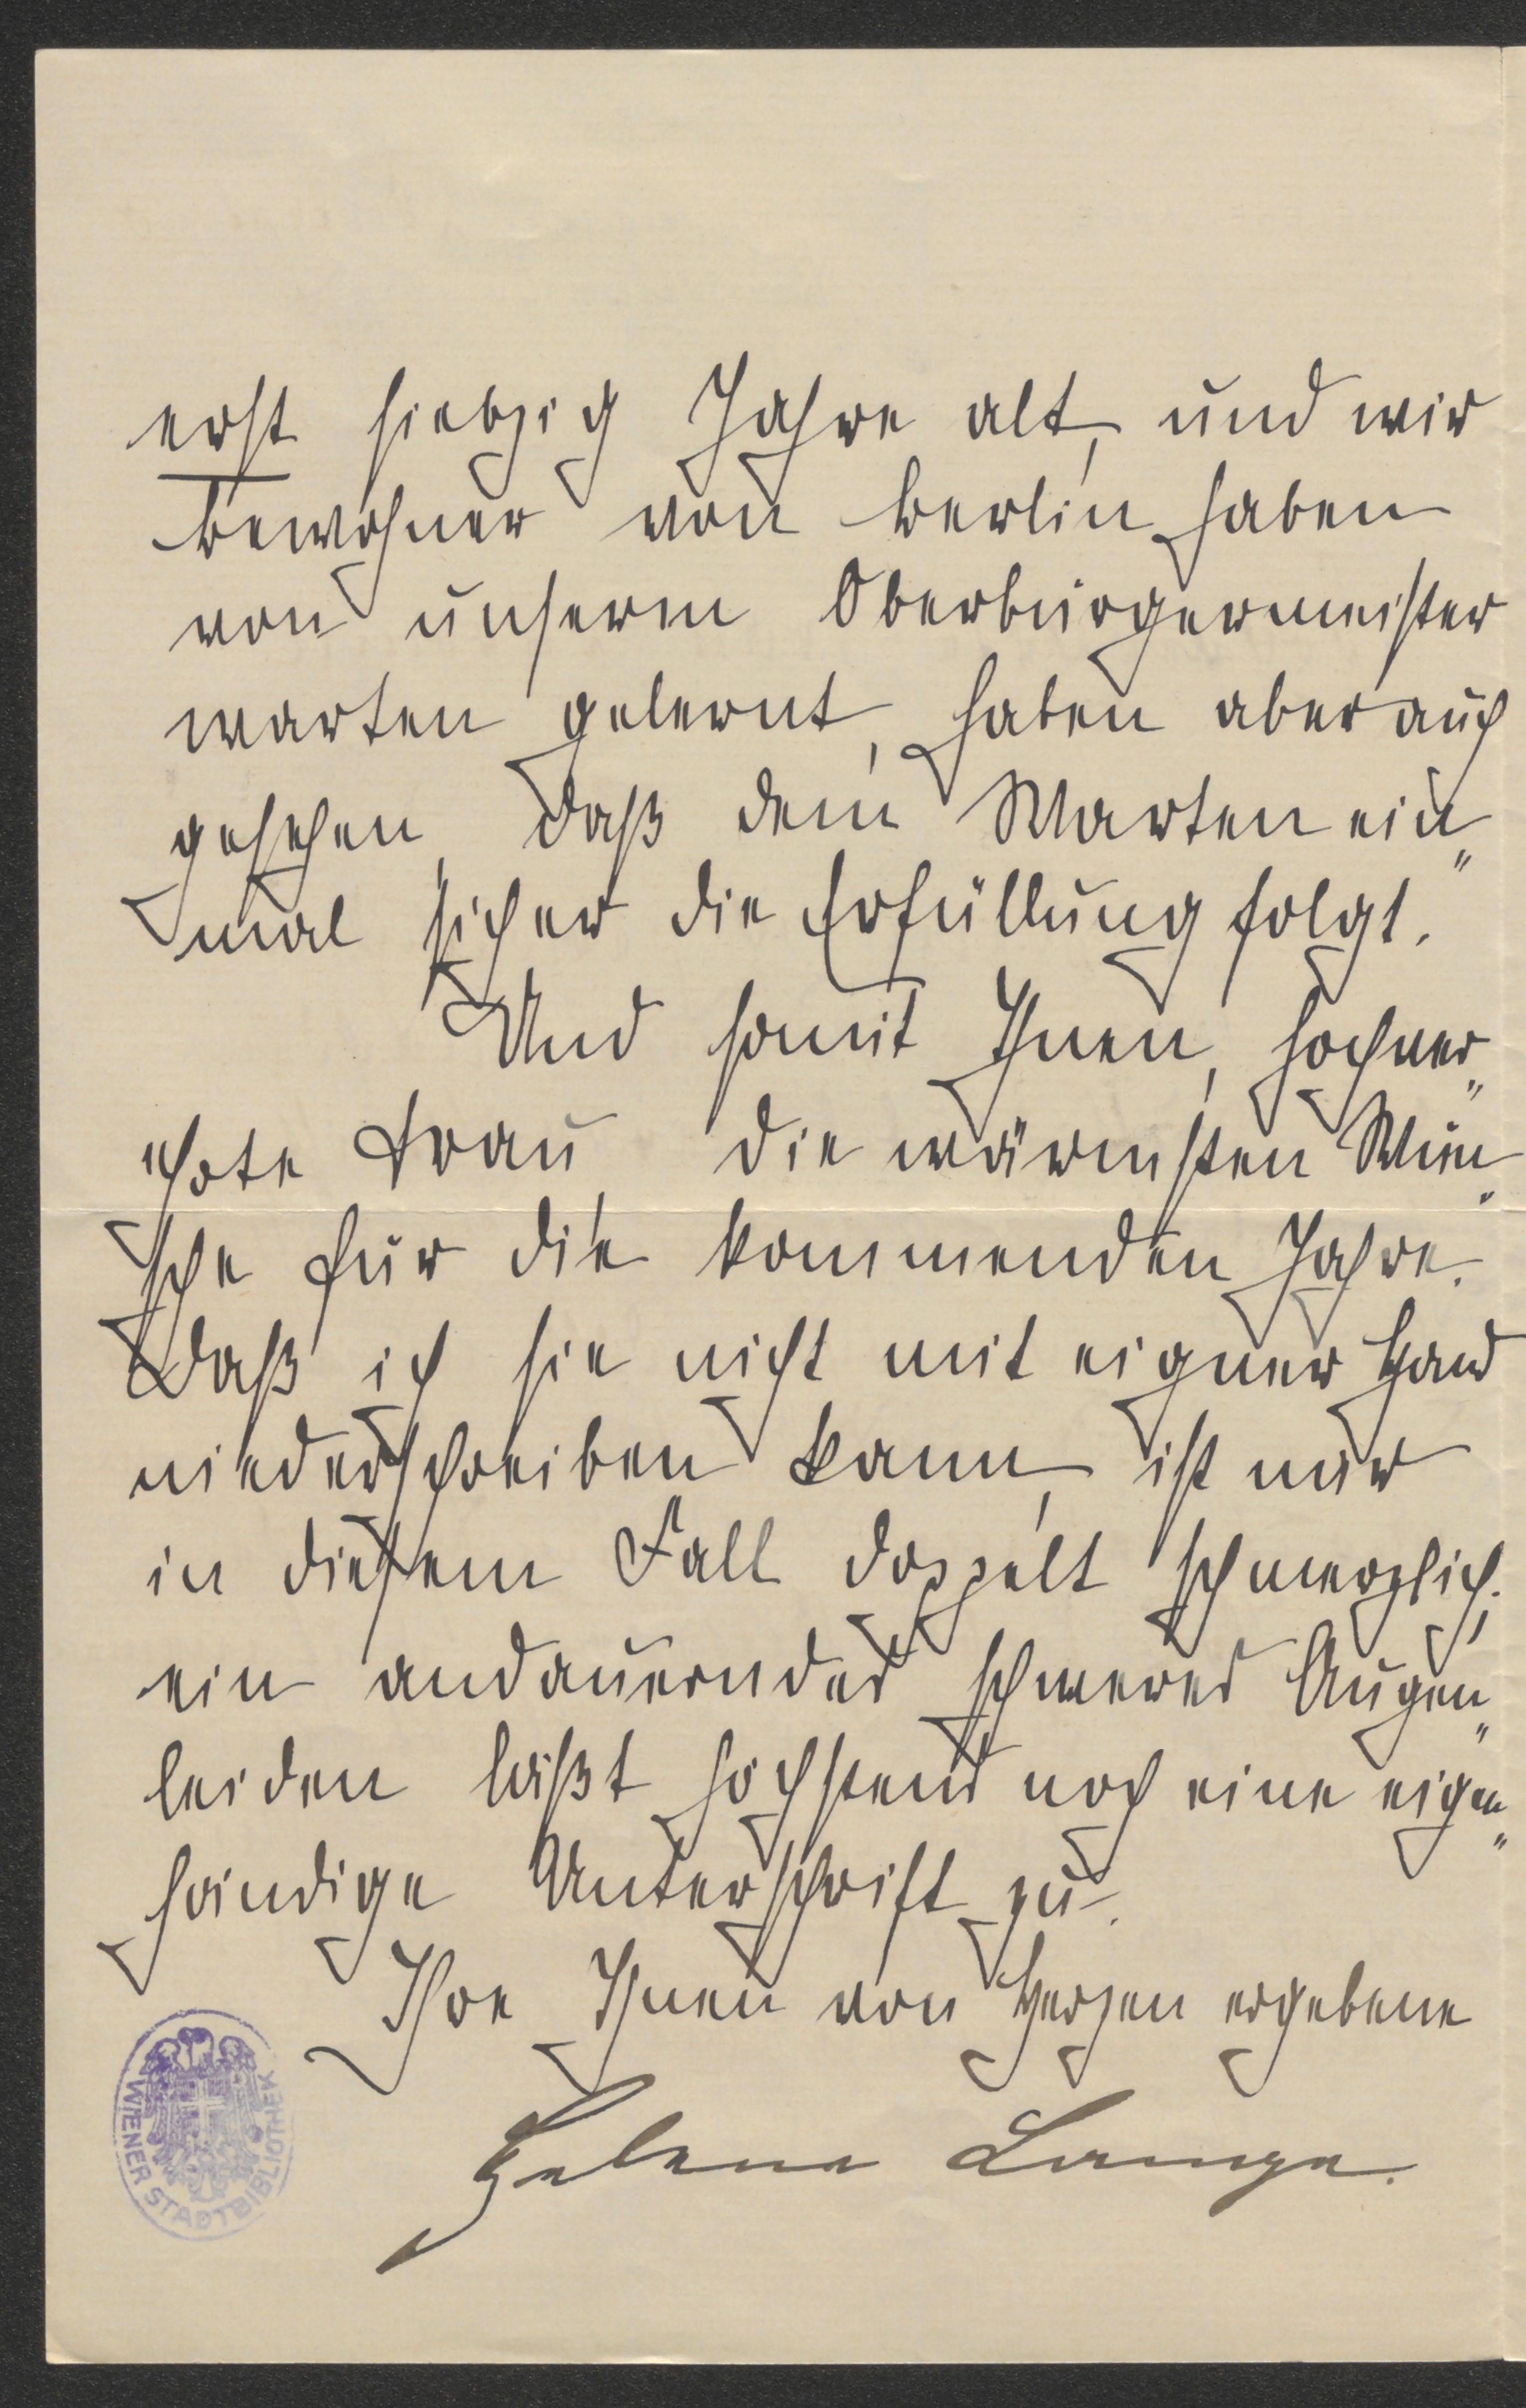 erst siebzig Jahre alt, und wir
Bewohner von Berlin haben
von unserm Oberbürgermeister
warten gelernt, haben aber auch
gesehen, daß dem Warten ein„
mal sicher die Erfüllung folgt.
Und somit Ihnen, hochver„
ehrte Frau die wärmsten Wün„
sche für die kommenden Jahre.
Daß ich sie nicht mit eigner Hand
niederschreiben kann, ist mir
in diesem Fall doppelt schmerzlich;
ein andauerndes schweres Augen„
leiden läßt höchstens noch eine eigen„
händige Unterschrift zu.
Ihre Ihnen von Herzen ergebene
Helene Lange.
WIENER STADTBIBLIOTHEK